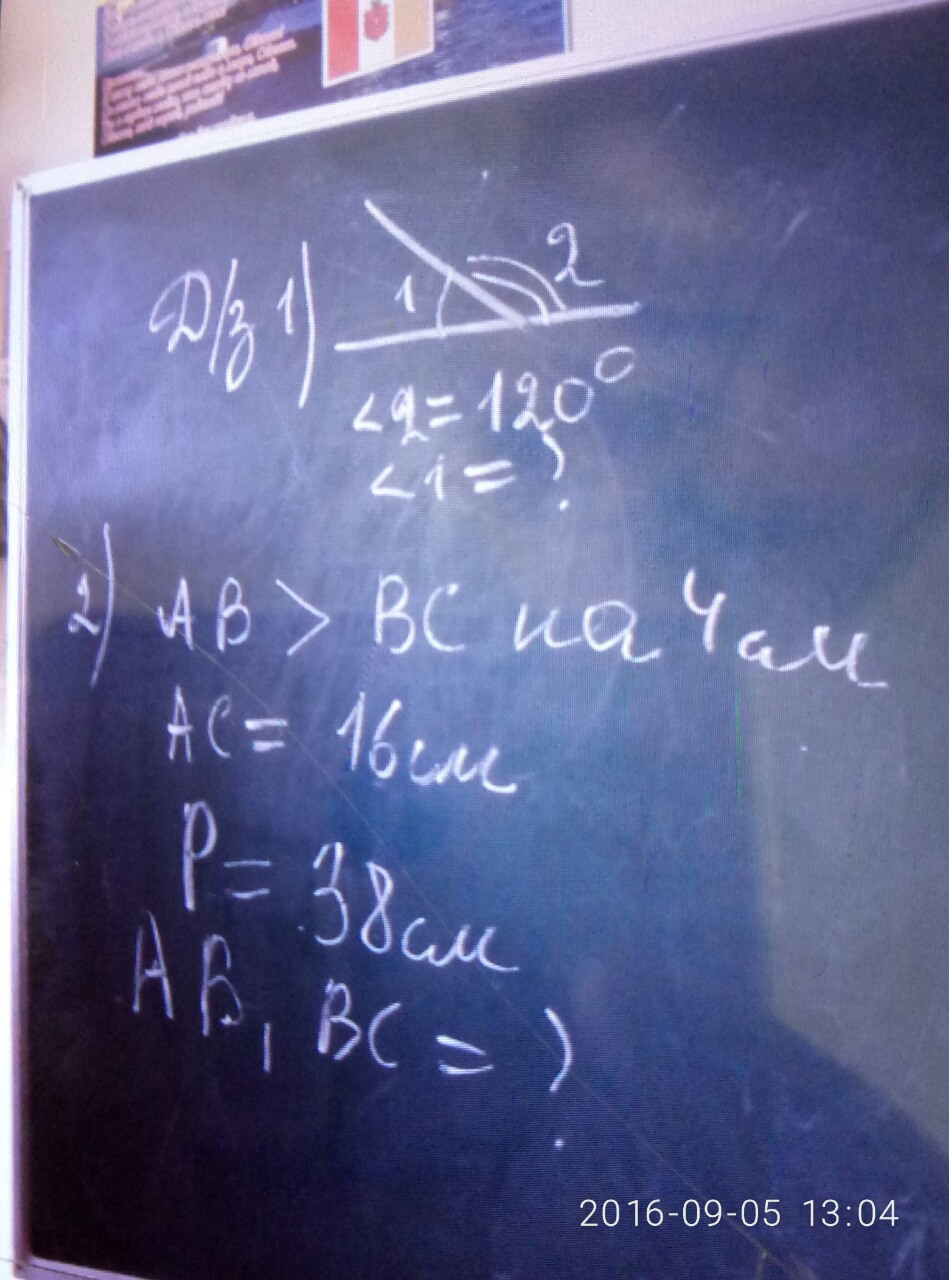 Д/з 1)
1 2
<2 = 120°
<1 = ?
2) AB > BC на 4 см
AC = 16 см
P = 38 см
AB, BC = ?
2016-09-05 13:04